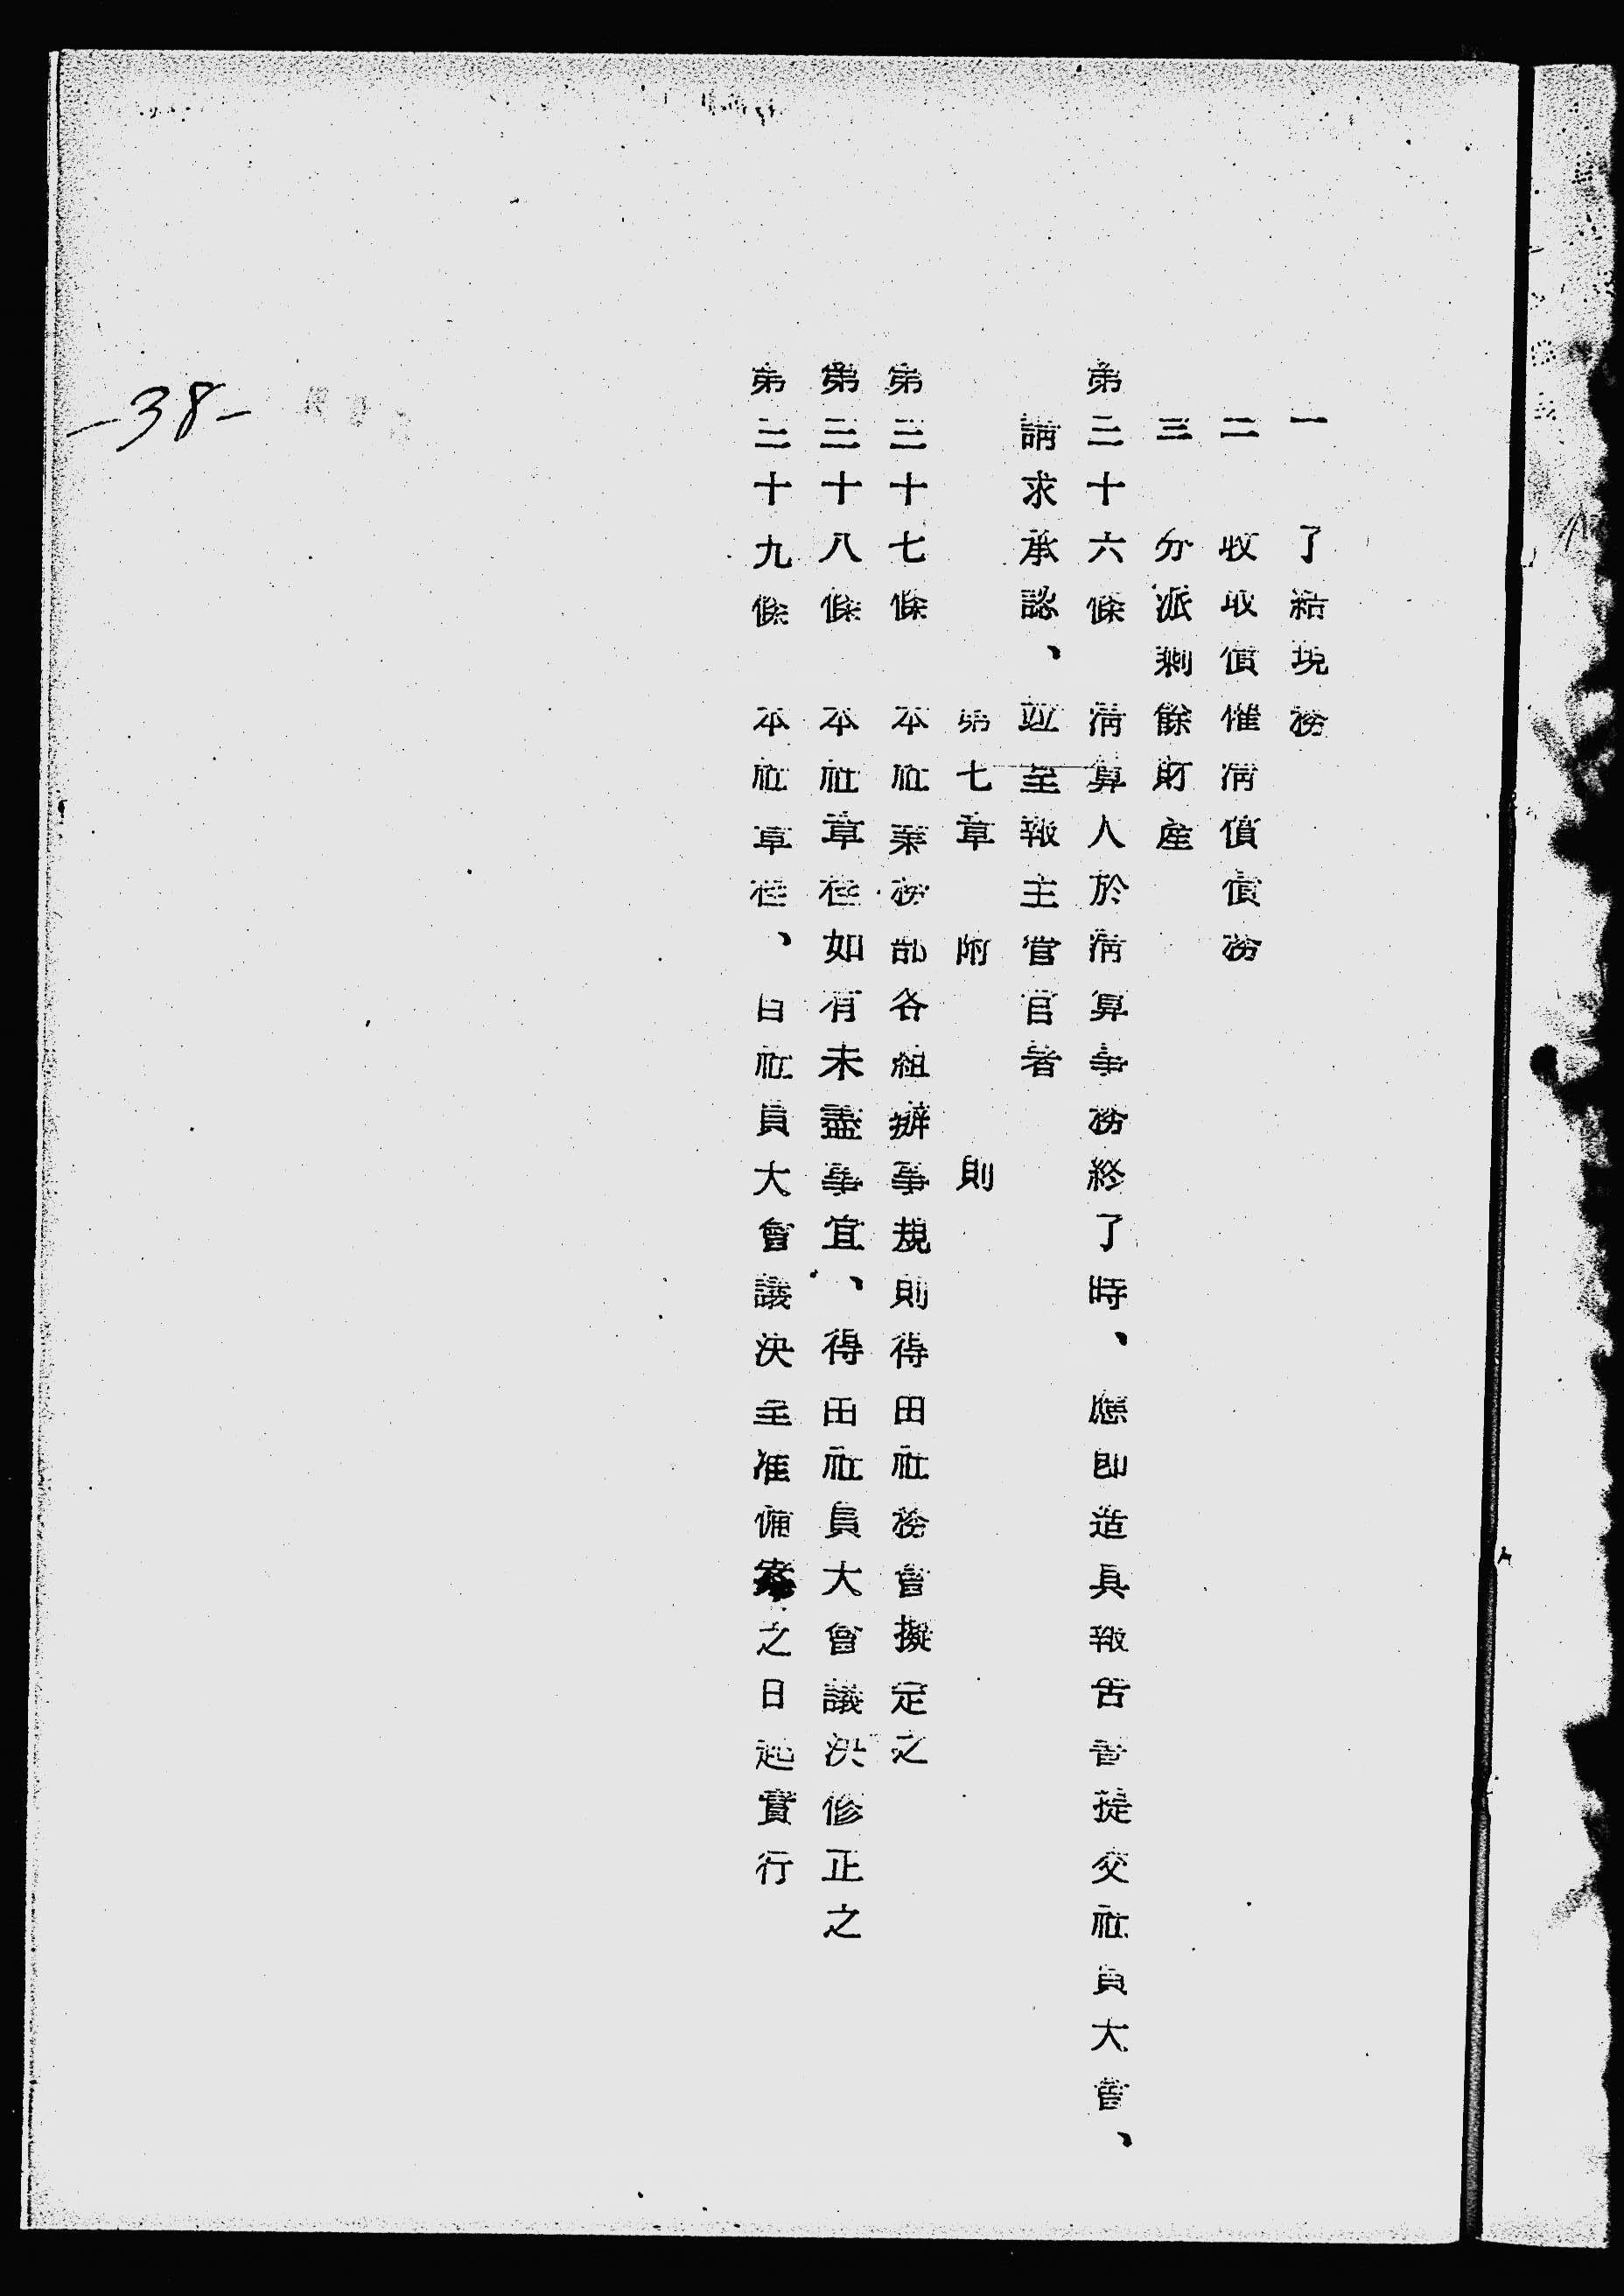 一　了結現務
二　收取債權清償債務
三　分派剩餘財產
第三十六條　清算人於清算事務終了時、應即造具報告書提交社員大會、
請求承認、並呈報主管官署
第七章　附　則
第三十七條　本社業務部各組辦事規則得由社務會擬定之
第三十八條　本社章程如有未盡事宜、得由社員大會議決修正之
第三十九條　本社章程、自社員大會議決呈准備案之日起實行
-38-